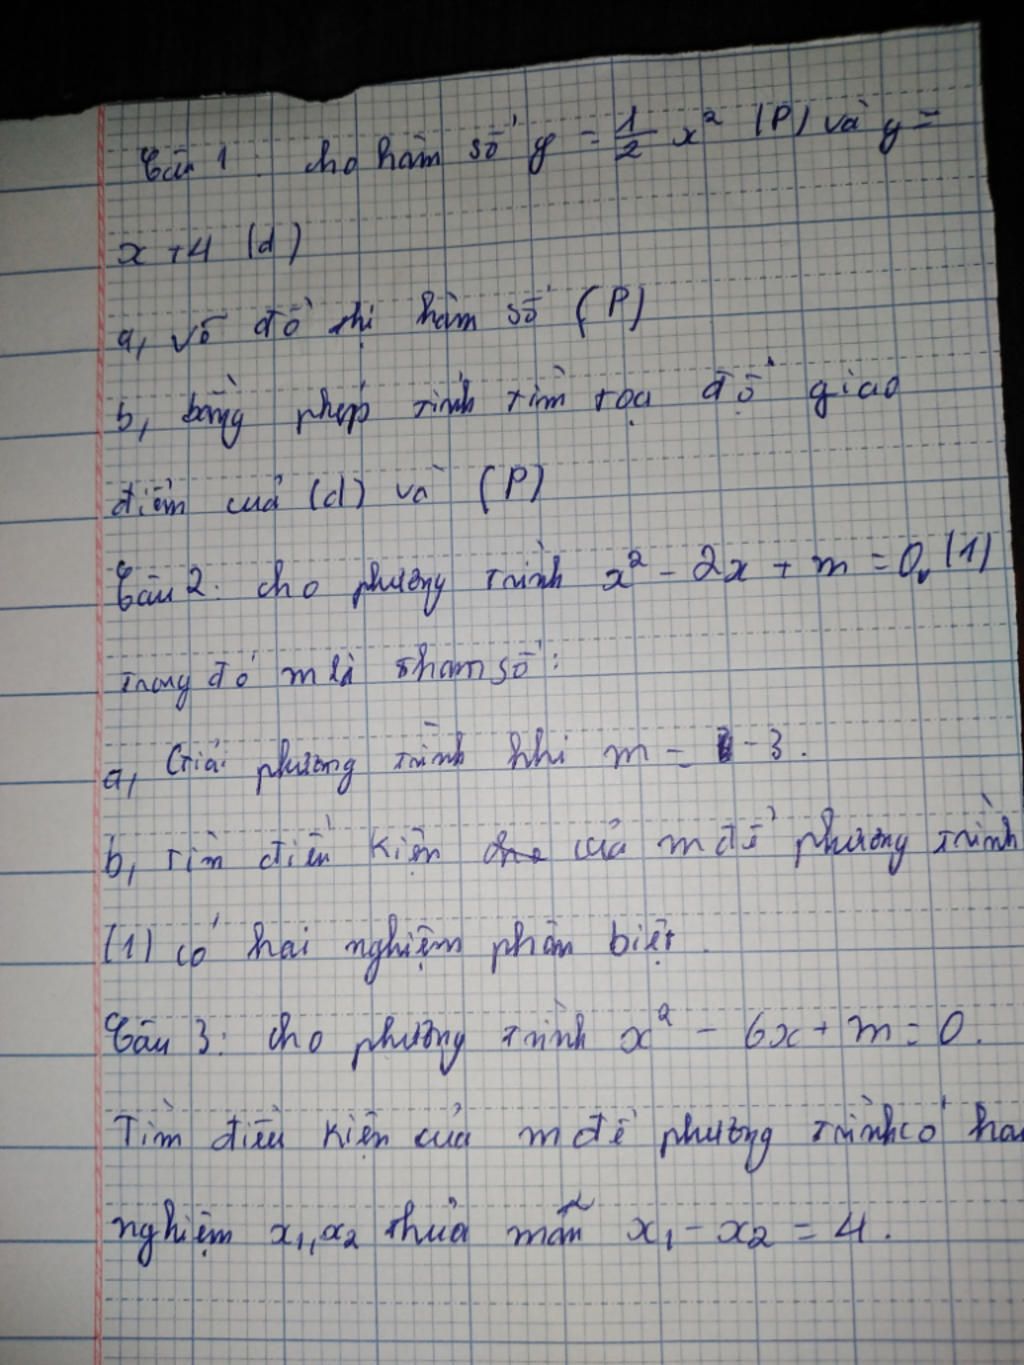 Câu 1 : cho hàm số y = 1/2 x² (P) và y =
x + 4 (d)
a, vẽ đồ thị hàm số (P)
b, bằng phép tính tìm tọa độ giao
điểm của (d) và (P)
Câu 2 : cho phương trình x² - 2x + m = 0, (1)
trong đó m là tham số :
a, Giải phương trình khi m = -3.
b, tìm điều kiện của m để phương trình
(1) có hai nghiệm phân biệt.
Câu 3 : cho phương trình x² - 6x + m = 0.
Tìm điều kiện của m để phương trình có hai
nghiệm x₁, x₂ thỏa mãn x₁ - x₂ = 4.